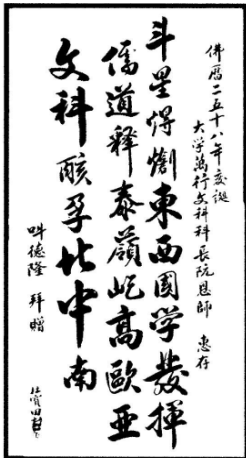 佛曆二五十八年慶誕
大学萬行文科科長阮恩師 惠存
斗星煒燗東西國学發揮
儒道释泰嶺屹高歐亚
文科酘孕北中南
呌德隆 拜贈